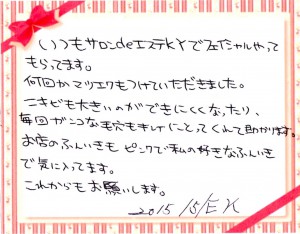 いつもサロンdeエステKYでフェイシャルやって
もらってます。
何回かマツエクもつけていただきました。
ニキビも大きいのができにくくなったり、
毎回ガンコな毛穴もキレイにとってくれて助かります。
お店のふんいきも ピンクで私の好きなふんいき
で気に入ってます。
これからもお願いします。
2015